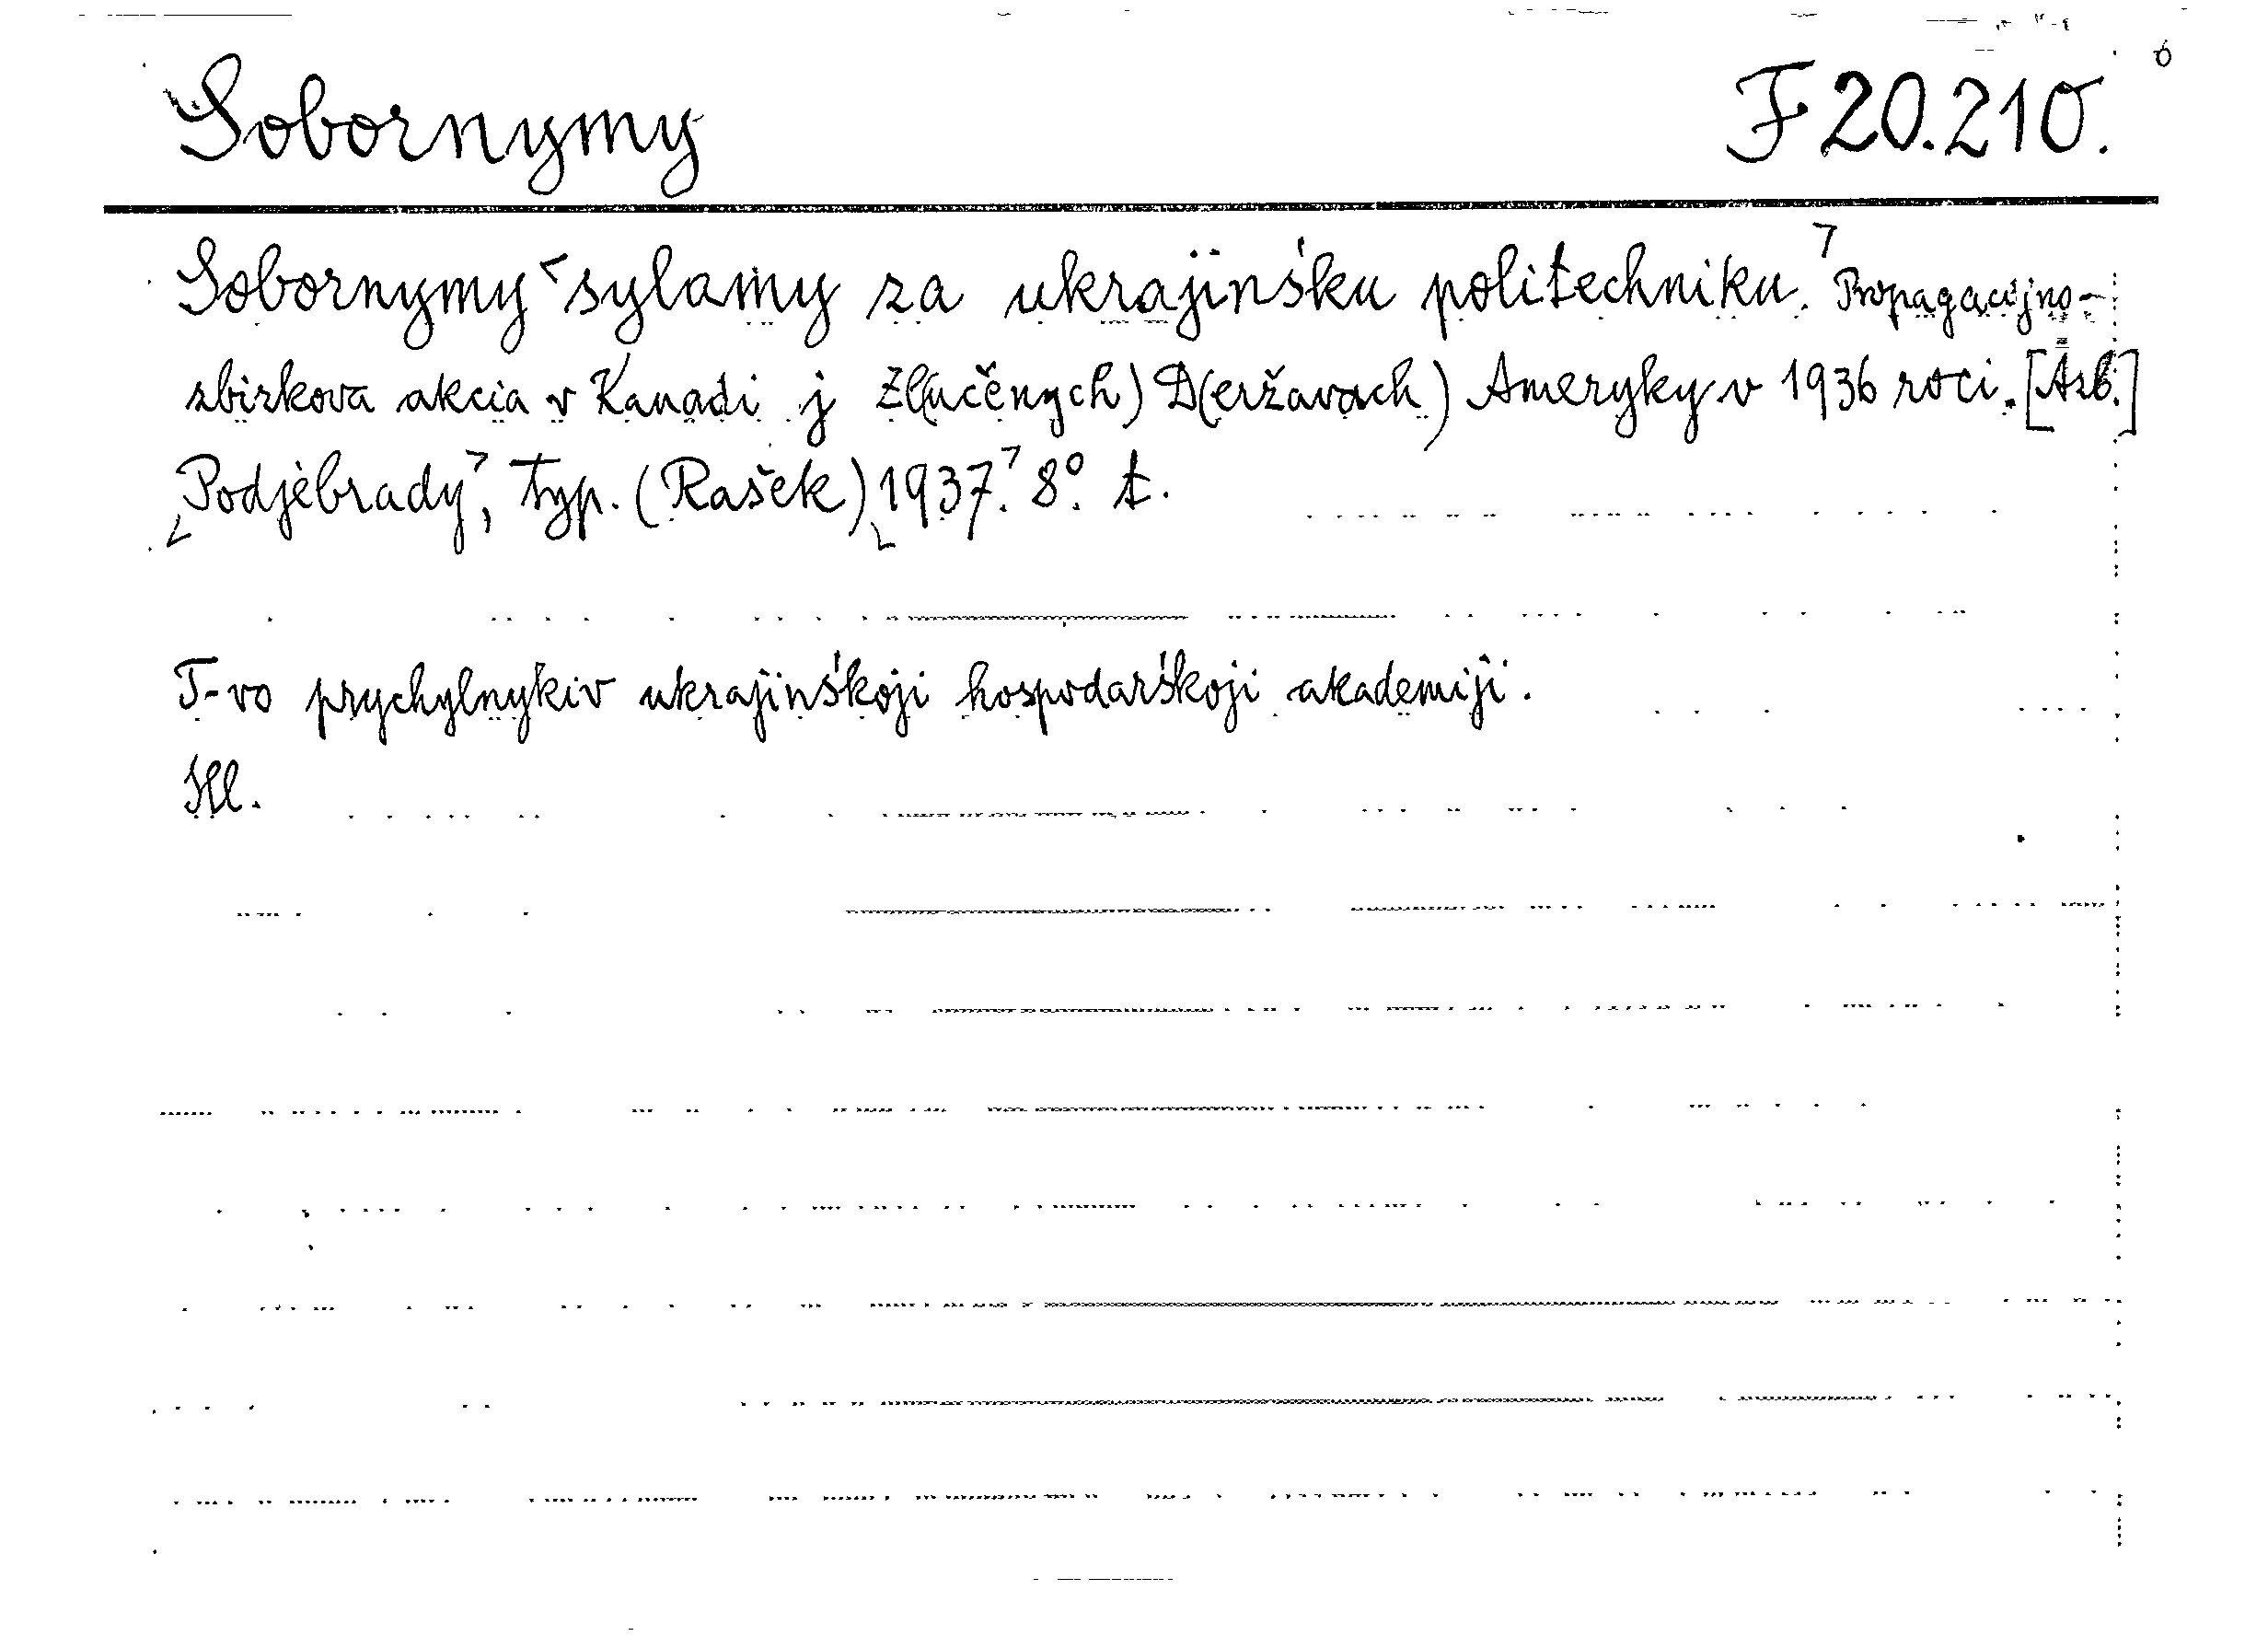 Sobornymy F 20.210.
Sobornymy sylamy za ukrajinśku politechniku. Propagacijno-
zbirkova akcia v Kanadi j Zl(učenych) D(eržavach) Ameryky v 1936 roci. [Azb.]
Podjebrady, Typ. (Rašek) 1937. 8° t.
T-vo prychylnykiv ukrajinśkoji hospodarśkoji akademiji.
Hl.